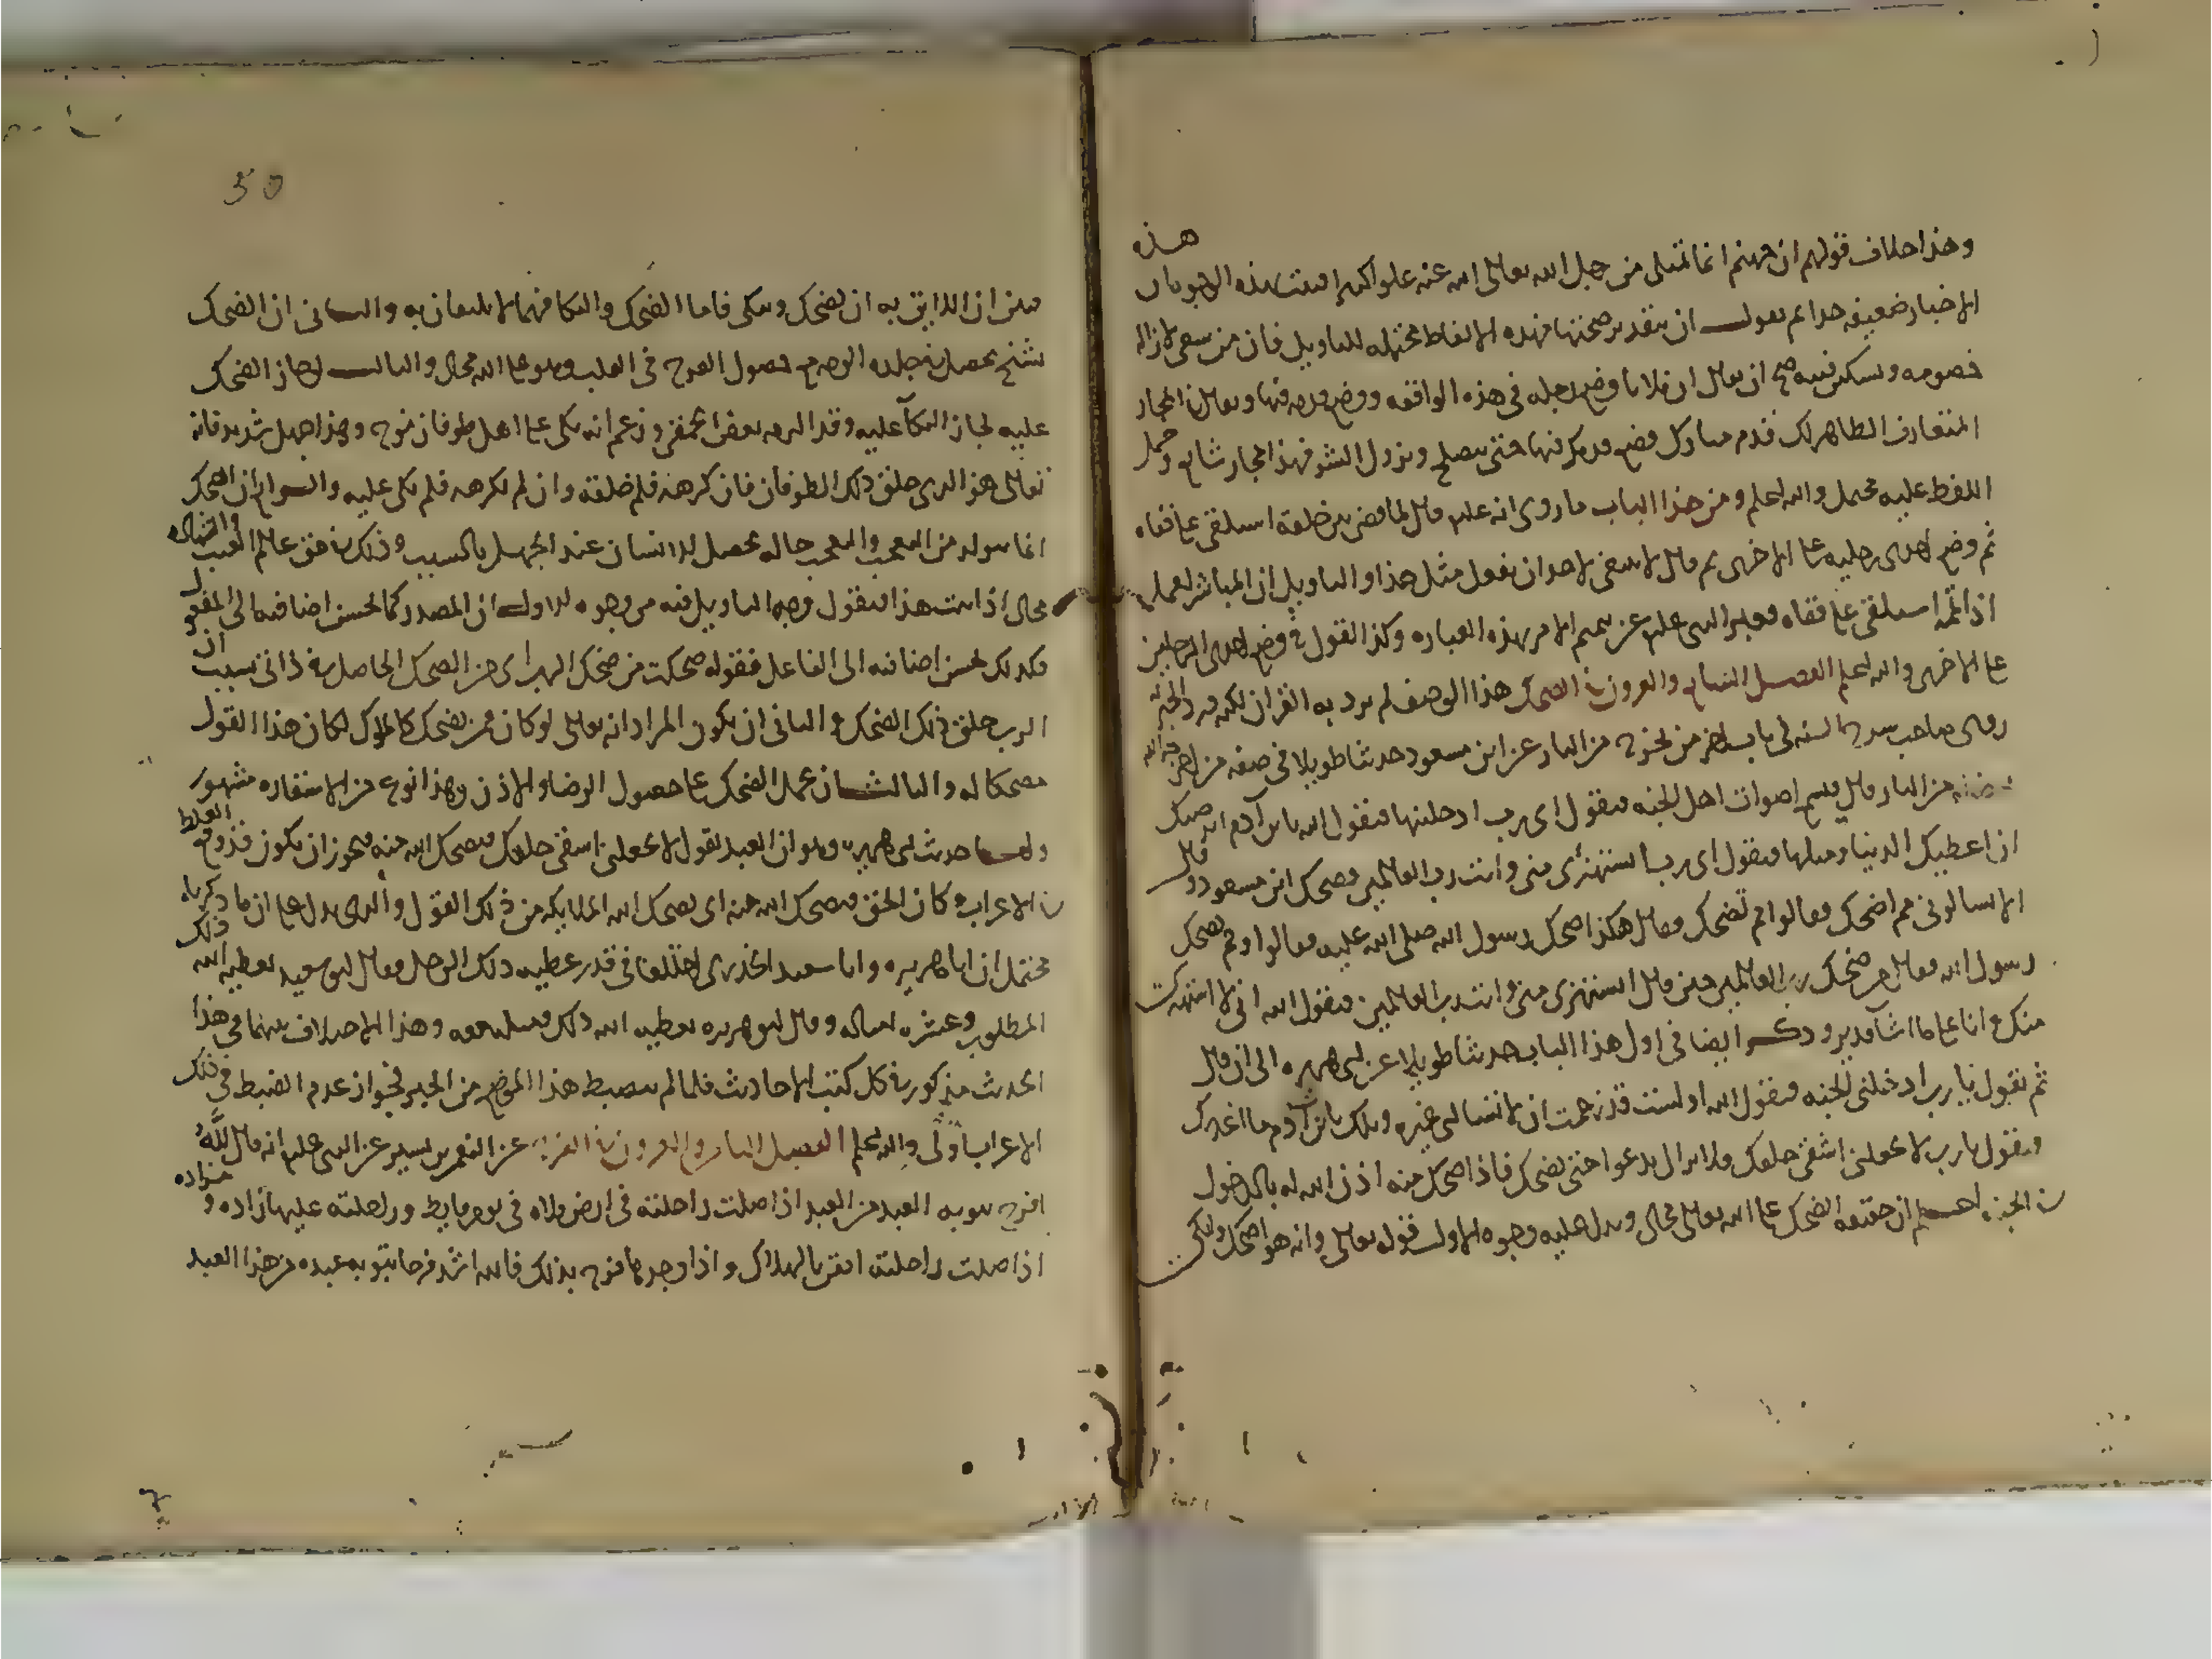 وهذا خلاف قولهم ان جهنم انما تمتلى من رجل الله تعالى الله عنه علوا كبيرا فثبت بهذه الوجوه ان هذه
الاخبار ضعيفه جدا ثم نقول ان بتقدير صحتها فهذه الالفاظ محتمله للتاويل فان من سعى لازاله
خصومه وتسكين فتنه صح ان يقال ان فلانا وضع رجله في هذه الواقعه ووضع قدمه فيها ويقال في المجاز
المتعارف الظاهر لك قدم مبارك فضع قدمك فيها حتى يصلح ويزول الشر فهذا مجاز شايع وحمل
اللفظ عليه محتمل والله اعلم ومن هذا الباب ما روى انه عليه قال لما قضى بين خلقه استلقى على قفاه
ثم وضع احدى رجليه على الاخرى ثم قال لا ينبغى لاحد ان يفعل مثل هذا والتاويل ان المباشر لعمل
اذا اتمه استلقى على قفاه فعبر النبى عليه عن تتميم الامر بهذه العباره وكذا القول فى وضع احدى الرجلين
على الاخرى والله اعلم الفصل التاسع والعشرون في الضحك هذا الوصف لم يرد به القران لكنه ورد في الخبر
روى صاحب شرح السنه فى باب اخر من يخرج من النار عن ابن مسعود حديثا طويلا فى صفه من اخرجه الله
من النار قال فيسمع اصوات اهل الجنه فيقول اى رب ادخلنيها فيقول الله يا ابن آدم ايرضيك
ان اعطيك الدنيا ومثلها فيقول اى رب استهزئ منى وانت رب العالمين فضحك ابن مسعود وقال
الا تسالونى مم اضحك فقالوا مم تضحك فقال هكذا ضحك رسول الله صلى الله عليه فقالوا ومم تضحك
رسول الله فقال من ضحك رب العالمين حين قال استهزئ منى وانت رب العالمين فيقول الله انى لا استهزئ
منك وانا على ما اشا قدير وذكر ايضا فى اول هذا الباب حديثا طويلا عن ابى هريره الى ان قال
ثم يقول يا رب ادخلنى الجنه فيقول الله اولست قد زعمت ان لا تسالى غيره ويلك يا ابن آدم ما اغدرك
فيقول يا رب لا تجعلنى اشقى خلقك فلا يزال يدعوا حتى يضحك فاذا ضحك منه اذن الله له بالدخول
في الجنه اعلم ان حقيقه الضحك على الله تعالى محال ويدل عليه وجوه الاول قوله تعالى وانه هو اضحك وابكى
50
فبين ان اللايق به ان يضحك ويبكى فاما الضحك والبكا فهما لا يليقان به والثانى ان الضحك
تشنج يحصل في جلده الوجه مع حصول الفرح فى القلب وهو على الله محال والثالث لو جاز الضحك
عليه لجاز البكآ عليه وقد التزمه بعض الحمقى وزعم انه بكى على اهل طوفان نوح وهذا جهل شديد فانه
تعالى هو الذى خلق ذلك الطوفان فان كرهه فلم خلقه وان لم يكرهه فلم بكى عليه والرابع ان الضحك
انما يتولد من التعجب والتعجب حاله تحصل للانسان عند الجهل بالسبب وذلك في حق عالم الغيب والشهاده
محال اذا ثبت هذا فنقول وجه التاويل فيه من وجوه الاول ان المصدر كما يحسن اضافته الى المفعول
فكذلك يحسن اضافته الى الفاعل فقوله ضحكت من ضحك الرب اى من الضحك الحاصل في ذاتى بسبب ان
الرب خلق ذلك الضحك والثانى ان يكون المراد انه تعالى لو كان ممن يضحك كالملوك لكان هذا القول
مضحكا له والثالث ان يحمل الضحك على حصول الرضا والاذن وهذا نوع من الاستعاره مشهور
واما حديث ابى هريره وهو ان العبد يقول لا تجعلنى اشقى خلقك فيضحك الله منه فيجوز ان يكون قد وقع الغلط
في الاعراب وكان الحق فيضحك الله منه اى يضحك الله الملايكه من ذلك القول والذى يدل على ان ما ذكرناه
محتمل ان ابا هريره وابا سعيد الخدرى اختلفا فى قدر عطيه ذلك الرجل فقال ابو سعيد يعطيه الله ذلك
المطلوب وعشره امثاله وقال ابو هريره يعطيه الله ذلك ومثله معه وهذا الاختلاف بينهما فى هذا
الحديث مذكور في كل كتب الاحاديث فلما لم ينضبط هذا الموضع من الخبر فجواز عدم الضبط فى ذلك
الاعراب اولى والله اعلم الفصل الثلاثون في الفرح عن النعمن بن بشير عن النبى عليه انه قال لله
افرح بتوبه العبد من العبد اذا ضلت راحلته فى ارض فلاه فى يوم قايظ وراحلته عليها زاده ومزاده
اذا ضلت راحلته ايقن بالهلاك واذا وجدها فرح بذلك فالله اشد فرحا بتوبه عبده من هذا العبد